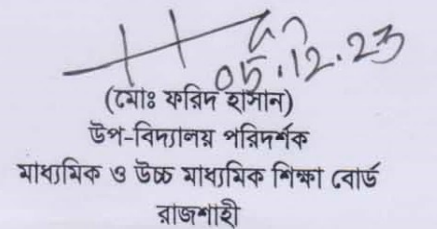 05.12.23
(মোঃ ফরিদ হাসান)
উপ-বিদ্যালয় পরিদর্শক
মাধ্যমিক ও উচ্চ মাধ্যমিক শিক্ষা বোর্ড
রাজশাহী